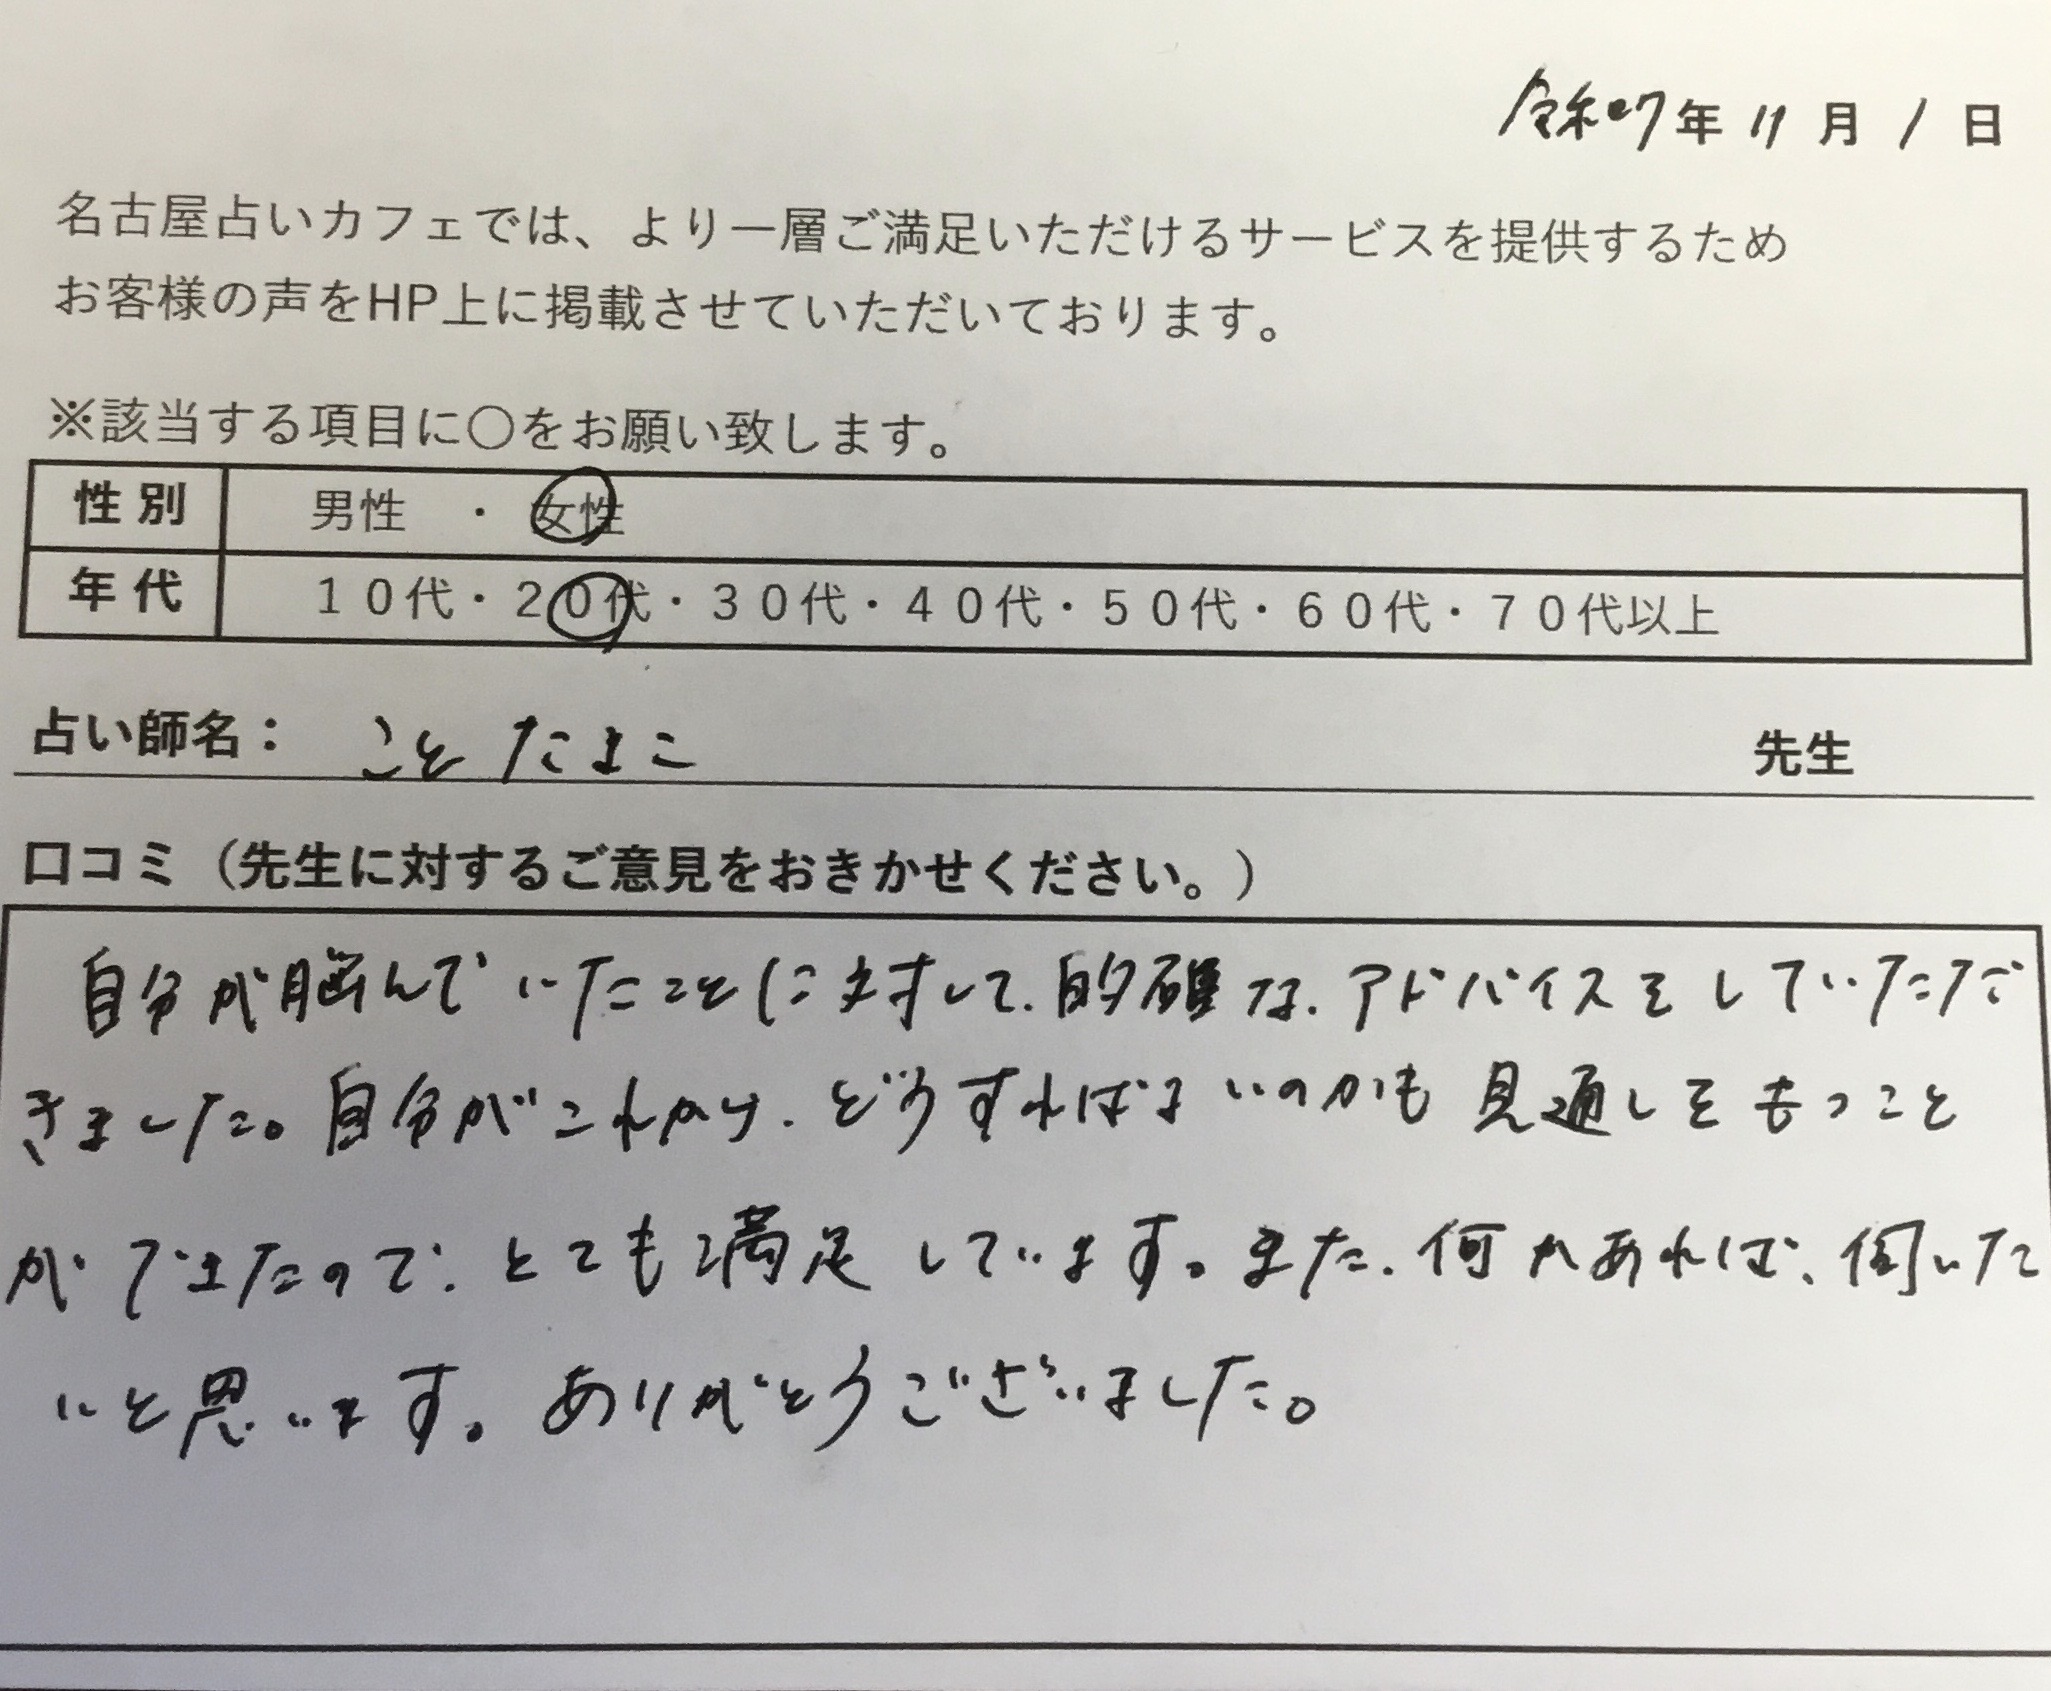 令和7年 11月 1日
名古屋占いカフェでは、より一層ご満足いただけるサービスを提供するため
お客様の声をHP上に掲載させていただいております。
※該当する項目に〇をお願い致します。
性別 男性 ・ 女性
年代 10代・20代・30代・40代・50代・60代・70代以上
占い師名: こと たまこ 先生
口コミ(先生に対するご意見をおきかせください。)
自分が脳んでいたことに対して、的確な、アドバイスをしていただ
きました。自分がこれから、どうすればよいのかも見通しをもつこと
ができたので、とても満足しています。また、何かあれば、伺いた
いと思います。ありがとうございました。